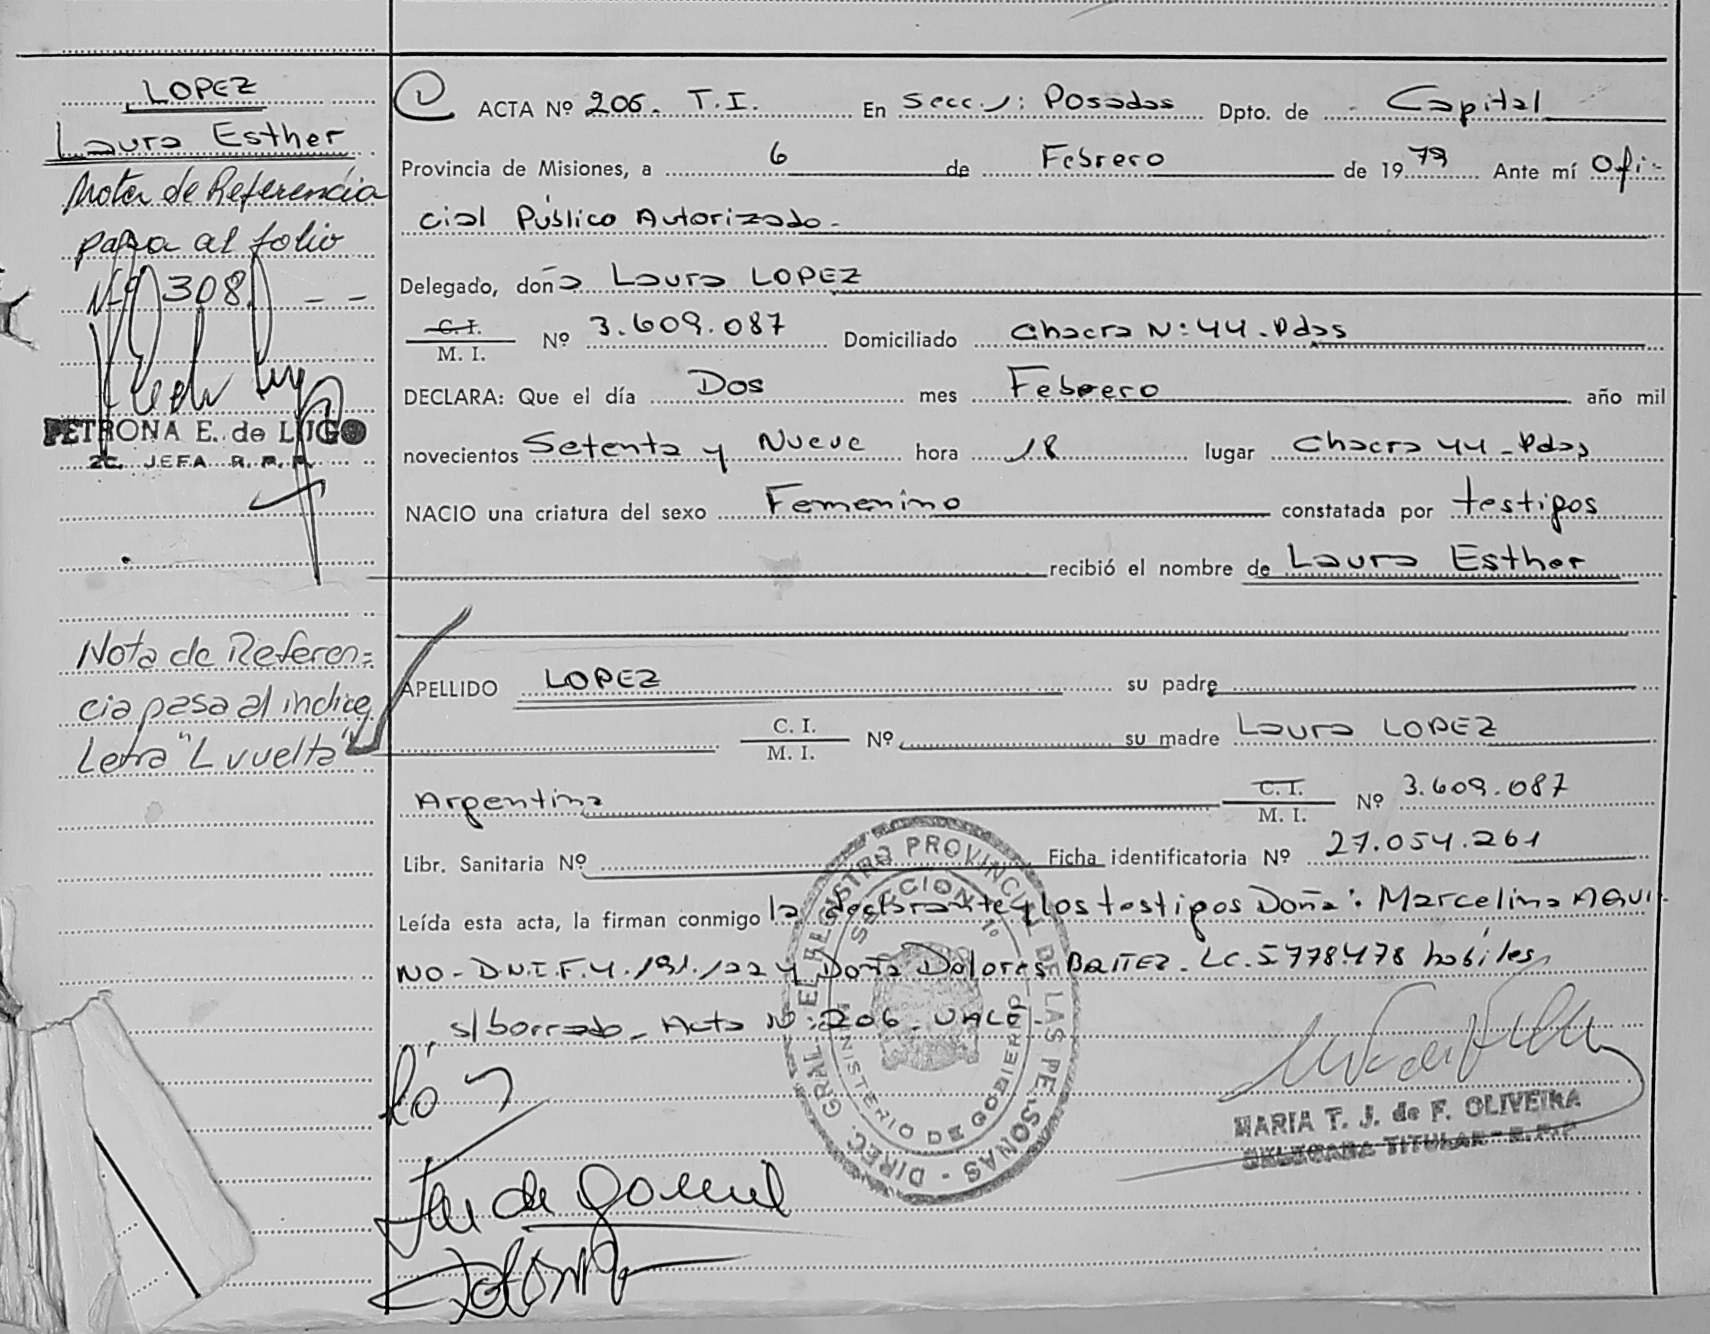 LOPEZ
Laura Esther
Nota de Referencia
pasa al folio
Nº 308. - -
PETRONA E. de LUGO
2ª. JEFA R. P. P.
Nota de Referen=
cia pasa al indice
Letra "L vuelta"
ACTA Nº 206. T.I. En Secc. 1: Posadas Dpto. de Capital
Provincia de Misiones, a 6 de Febrero de 1979 Ante mí Ofi-
cial Público Autorizado.
Delegado, doña Laura LOPEZ
C. I. / M. I. Nº 3.609.087 Domiciliado Chacra N: 44 - Pdas
DECLARA: Que el día Dos mes Febrero año mil
novecientos Setenta y Nueve hora 18 lugar Chacra 44 - Pdas
NACIO una criatura del sexo Femenino constatada por testigos
recibió el nombre de Laura Esther
APELLIDO LOPEZ su padre
C. I. / M. I. Nº su madre Laura LOPEZ
Argentina C. I. / M. I. Nº 3.609.087
Libr. Sanitaria Nº Ficha identificatoria Nº 27.054.261
Leída esta acta, la firman conmigo la declarante y los testigos Doña: Marcelina AQUI-
NO - D.N.I. F. 4.191.122 y Doña Dolores BRITEZ - LC. 5778478 hábiles
s/borrado - Acta N: 206 - VALE -
DIREC. GRAL. EL REGISTRO PROVINCIAL DE LAS PERSONAS
SECCION 1º
MINISTERIO DE GOBIERNO
MARIA T. J. de F. OLIVEIRA
DELEGADA TITULAR - R.P.P.